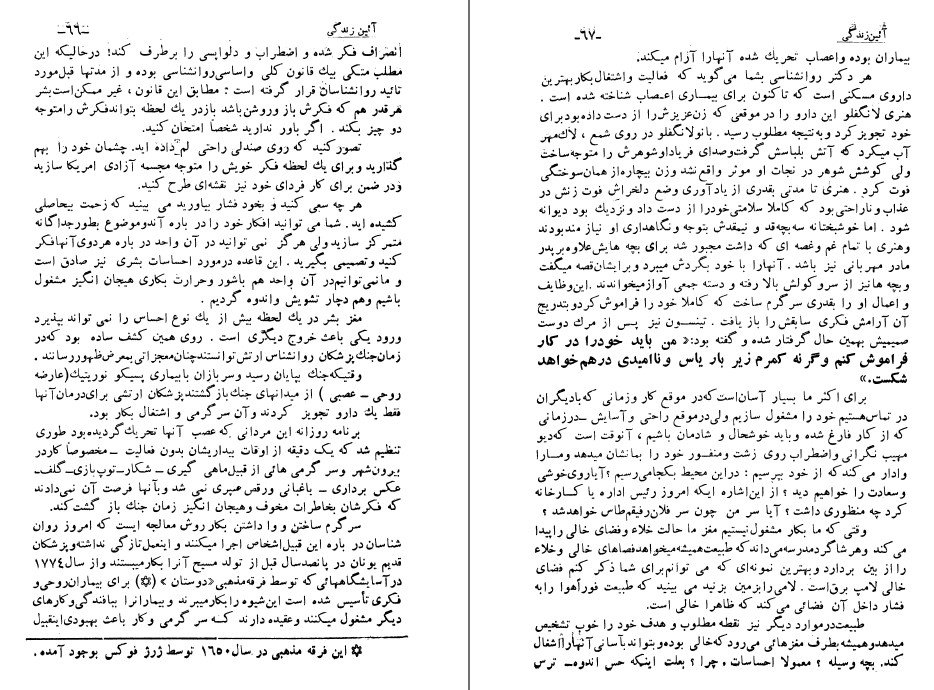 آئین زندگی ـ۶۶ـ
انصراف فکر شده و اضطراب و دلواپسی را برطرف کند! درحالیکه این
مطلب متکی بیك قانون کلی واساسی روانشناسی بوده و از مدتها قبل مورد
تائید روانشناسان قرار گرفته است : مطابق این قانون ، غیر ممکن‌است بشر
هرقدر هم که فکرش باز وروشن باشد بازدر یك لحظه بتواند فکرش رامتوجه
دو چیز بکند . اگر باور ندارید شخصاً امتحان کنید.
تصور کنید که روی صندلی راحتی لم داده اید. چشمان خود را بهم
گذارید وبرای یك لحظه فکر خویش را متوجه مجسمه آزادی امریکا سازید
ودر ضمن برای کار فردای خود نیز نقشه‌ای طرح کنید.
هر چه سعی کنید و بخود فشار بیاورید می بینید که زحمت بیحاصلی
کشیده اید. شما می توانید افکار خود را در باره آندوموضوع بطورجداگانه
متمرکز سازید ولی هرگز نمی توانید در آن واحد در باره هردوی آنها فکر
کنید وتصمیمی بگیرید . این قاعده درمورد احساسات بشری نیز صادق است
و مانمی‌توانیم در آن واحد هم باشور وحرارت بکاری هیجان انگیز مشغول
باشیم وهم دچار تشویش واندوه گردیم .
مغز بشر در یك لحظه بیش از یك نوع احساس را نمی تواند بپذیرد
ورود یکی باعث خروج دیگری است . روی همین کشف ساده بود که در
زمان‌جنك پزشکان روانشناس ارتش توانستند چنان معجزاتی بمعرض ظهور رسانند .
وقتیکه جنك بپایان رسید وسربازان با بیماری پسیکو نوریتیك (عارضه
روحی ـ عصبی ) از میدانهای جنك بازگشتند پزشکان ارتشی برای درمان آنها
فقط یك دارو تجویز کردند وآن سرگرمی و اشتغال بکار بود.
برنامه روزانه این مردانی که عصب آنها تحریك گردیده بود طوری
تنظیم شد که یك دقیقه از اوقات بیداریشان بدون فعالیت ـ مخصوصاً کار در
بیرون شهر وسر گرمی هائی از قبیل ماهی گیری ـ شکار ـ توپ‌بازی ـ گلف ـ
عکس برداری ـ باغبانی ورقص سپری نمی شد وبآنها فرصت آن نمی دادند
که فکرشان بخاطرات مخوف وهیجان انگیز زمان جنك باز گشت کند.
سرگرم ساختن و وا داشتن بکار روش معالجه ایست که امروز روان
شناسان در باره این قبیل اشخاص اجرا میکنند و اینعمل تازگی نداشته وپزشکان
قدیم یونان در پانصدسال قبل از تولد مسیح آنرا بکار میبستند واز سال ۱۷۷۴
در آسایشگاههائی که توسط فرقه مذهبی «دوستان » (✡) برای بیماران روحی و
فکری تأسیس شده است این شیوه را بکار میبرند و بیمارانرا ببافندگی وکارهای
دیگر مشغول میکنند وعقیده دارند کـه سر گرمی وکار باعث بهبودی اینقبیل
✡ این فرقه مذهبی در سال ۱۶۵۰ توسط ژرژ فوکس بوجود آمده .
آئین زندگی ـ۶۷ـ
بیماران بوده واعصاب تحریك شده آنهارا آرام میکند.
هر دکتر روانشناسی بشما می‌گوید که فعالیت واشتغال بکار بهترین
داروی مسکنی است که تاکنون برای بیماری اعصاب شناخته شده است .
هنری لانگفلو این دارو را در موقعی که زن عزیزش را از دست داده بود برای
خود تجویز کرد و به نتیجه مطلوب رسید . بانو لانگفلو در روی شمع ، لاك مهر
آب میکرد که آتش بلباسش گرفت وصدای فریاد او شوهرش را متوجه ساخت
ولی کوشش شوهر در نجات او موثر واقع نشد وزن بیچاره از همان سوختگی
فوت کرد . هنری تا مدتی بقدری از یادآوری وضع دلخراش فوت زنش در
عذاب و ناراحتی بود که کاملا سلامتی خودرا از دست داد ونزدیك بود دیوانه
شود . اما خوشبختانه سه بچه قد و نیمقدش بتوجه و نگاهداری او نیاز مند بودند
وهنری با تمام غم وغصه ای که داشت مجبور شد برای بچه هایش علاوه بر پدر
مادر مهربانی نیز باشد . آنهارا با خود بگردش میبرد و برایشان قصه میگفت
وبچه ها نیز از سروکولش بالا رفته و دسته جمعی آواز میخواندند . این وظایف
و اعمال او را بقدری سرگرم ساخت که کاملا خود را فراموش کرد و بتدریج
آن آرامش فکری سابقش را باز یافت . تینسون نیز پس از مرك دوست
صمیمیش بهمین حال گرفتار شده و گفته بود: « من باید خودرا در کار
فراموش کنم و گرنه کمرم زیر بار یاس و ناامیدی درهم خواهد
شکست.»
برای اکثر ما بسیار آسان است که در موقع کار وزمانی که با دیگران
در تماس هستیم خود را مشغول سازیم ولی در موقع راحتی و آسایش ـ در زمانی
که از کار فارغ شده و باید خوشحال و شادمان باشیم ، آنوقت است که دیو
مهیب نگرانی واضطراب روی زشت ومنفـور خود را بمانشان میدهد ومـارا
وادار می‌کند که از خود بپرسیم : دراین محیط بکجا می رسیم ؟ آیا روی خوشی
وسعادت را خواهیم دید ؟ از این اشاره ایکه امروز رئیس اداره یا کـارخانه
کرد چه منظوری داشت ؟ آیا سر من چون سر فلان رفیقم طاس خواهد شد ؟
وقتی که ما بکار مشغول نیستیم مغز ما حالت خلاء وفضای خالی را پیدا
می کند وهر شاگرد مدرسه می‌داند که طبیعت همیشه میخواهد فضاهای خالی و خلاء
را از بین بردارد و بهترین نمونه ای که می توانم برای شما ذکر کنم فضای
خالی لامپ برق است . لامپ را بزمین بزنید می بینید که طبیعت فوراً هوا را به
فشار داخل آن فضائی می کند که ظاهرا خالی است.
طبیعت درموارد دیگر نیز نقطه مطلوب و هدف خود را خوب تشخیص
میدهد وهمیشه بطرف مغزهائی می‌رود که خالی بوده و بتواند بآسانی آنها را اشغال
کند. بچه وسیله ؟ معمولا احساسات. چرا ؟ بعلت اینکه حس اندوه ـ ترس